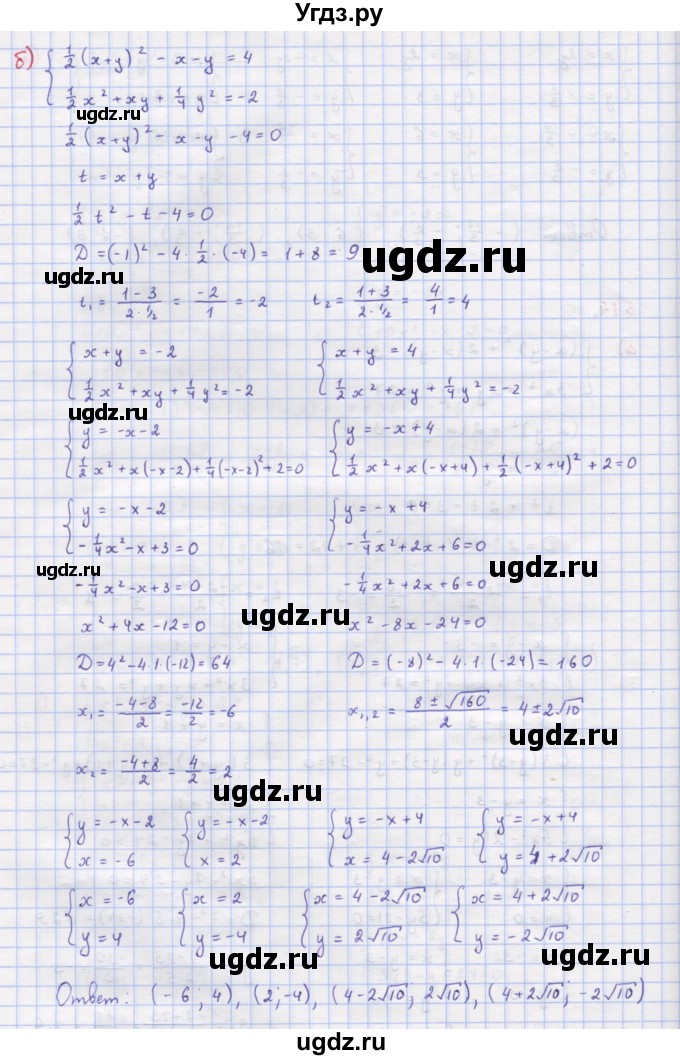 Угдз.ру
б) { 1/2 (x+y)² - x - y = 4
1/2 x² + xy + 1/4 y² = -2
ugdz.ru
1/2 (x+y)² - x - y - 4 = 0
ugdz.ru
t = x + y
1/2 t² - t - 4 = 0
D = (-1)² - 4 · 1/2 · (-4) = 1 + 8 = 9
ugdz.ru
ugdz.ru
t₁ = (1-3)/(2·1/2) = -2/1 = -2 t₂ = (1+3)/(2·1/2) = 4/1 = 4
{ x + y = -2 { x + y = 4
1/2 x² + xy + 1/4 y² = -2 1/2 x² + xy + 1/4 y² = -2
ugdz.ru
ugdz.ru
{ y = -x - 2 { y = -x + 4
1/2 x² + x(-x-2) + 1/4 (-x-2)² + 2 = 0 1/2 x² + x(-x+4) + 1/2 (-x+4)² + 2 = 0
{ y = -x - 2 { y = -x + 4
- 1/4 x² - x + 3 = 0 - 1/4 x² + 2x + 6 = 0
ugdz.ru
ugdz.ru
- 1/4 x² - x + 3 = 0 - 1/4 x² + 2x + 6 = 0
ugdz.ru
x² + 4x - 12 = 0 x² - 8x - 24 = 0
D = 4² - 4·1·(-12) = 64 D = (-8)² - 4·1·(-24) = 160
x₁ = (-4-8)/2 = -12/2 = -6 x₁,₂ = (8 ± √160)/2 = 4 ± 2√10
ugdz.ru
x₂ = (-4+8)/2 = 4/2 = 2
ugdz.ru
{ y = -x - 2 { y = -x - 2 { y = -x + 4 { y = -x + 4
x = -6 x = 2 x = 4 - 2√10 y = 4 + 2√10
ugdz.ru
{ x = -6 { x = 2 { x = 4 - 2√10 { x = 4 + 2√10
y = 4 y = -4 y = 2√10 y = -2√10
ugdz.ru
Ответ: (-6; 4), (2; -4), (4-2√10; 2√10), (4+2√10; -2√10)
ugdz.ru